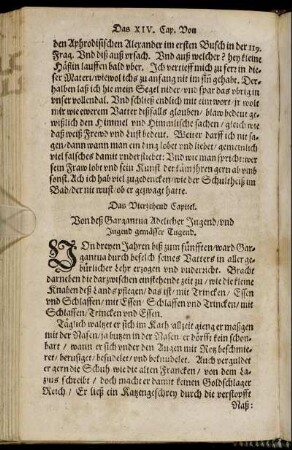 Das XIV. Cap. Von
den Aphrodisischen Alexander im ersten Busch in der 119.
Frag. Vnd diß auß vrsach. Vnd auß welcher? hey kleine
Häßlin lauffen bald vber. Ich vertieff mich zu fern in die-
ser Materi / wiewol ichs zu anfang nit im siñ gehabt. Der-
halben laß ich hie mein Segel nider / vnd spar das vbrig in
vnser vollendal. Vnd schließ endlich mit eim wort / jr wolt
mir wie ewerem Vatter deßfalls glauben / blaw bedeut ge-
wißlich den Himmel vnd Himmlische sachen / gleich wie
daß weiß Frewd vnd Lust bedeut. Weiter darff ich nit sa-
gen / dann wann man ein ding lobet vnd liebet / gemeinlich
viel falsches damit vnderfliebet: Vnd wie man spricht: wer
sein Fraw lobt vnd sein Kunst
sonst. Ach ich hab viel zugedecken / wie der Schultheiß im
Bad / der nit wust / ob er gezwagt hatte.
Das Vierzehend Capitel.
Von deß Gargantua Adelicher Jugend / vnd
Jugend gemässer Tugend.
VOn dreyen Jahren biß zum fünfften / ward Gar-
gantua durch befelch seines Vatters in aller ge-
bürlicher Lehr erzogen vnd vnderricht. Bracht
darneben die darzwischen entstehende zeit zu / wie die kleine
Knaben deß Lands pflegen / das ist / mit Trincken / Essen
vnd Schlaffen / mit Essen / Schlaffen vnd Trincken / mit
Schlaffen / Trincken vnd Essen.
Täglich waltzet er sich im Kath / allzeit gieng er maßgen
mit der Nasen / ja butzen in der Nasen er dörfft kein schon-
bart / wann er sich vnder den Augen mit Rotz beschmie-
ret / berusiget / besudelet / vnd beknudelet. Auch verguldet
er gern die Schuh / wie die alten Francken / von dem La-
zius schreibt / doch macht er damit keinen Goldschlager
Reich / Er ließ ein Katzengeschrey durch die verstopfft
Naß: